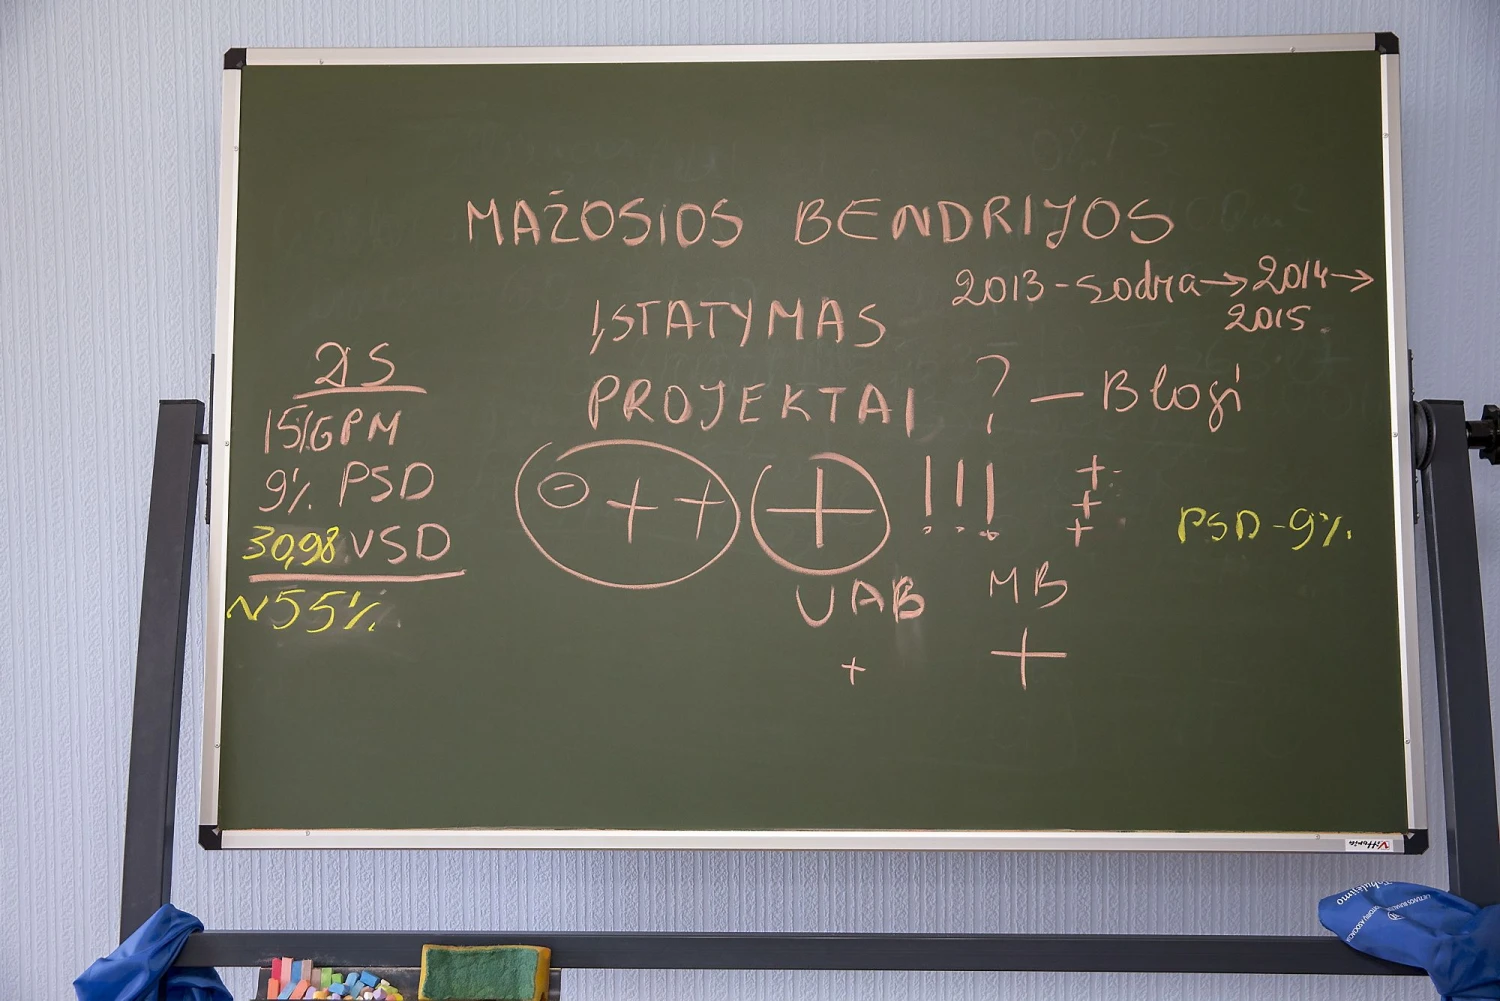 MAŽOSIOS BENDRIJOS
2013 - Sodra → 2014 →
2015
ĮSTATYMAS
PROJEKTAI ? — Blogi
DS
15% GPM
9% PSD
30,98 VSD
N55%
- + +
+
! ! !
+
+
+
PSD - 9%
UAB
MB
+
+
Vittoria